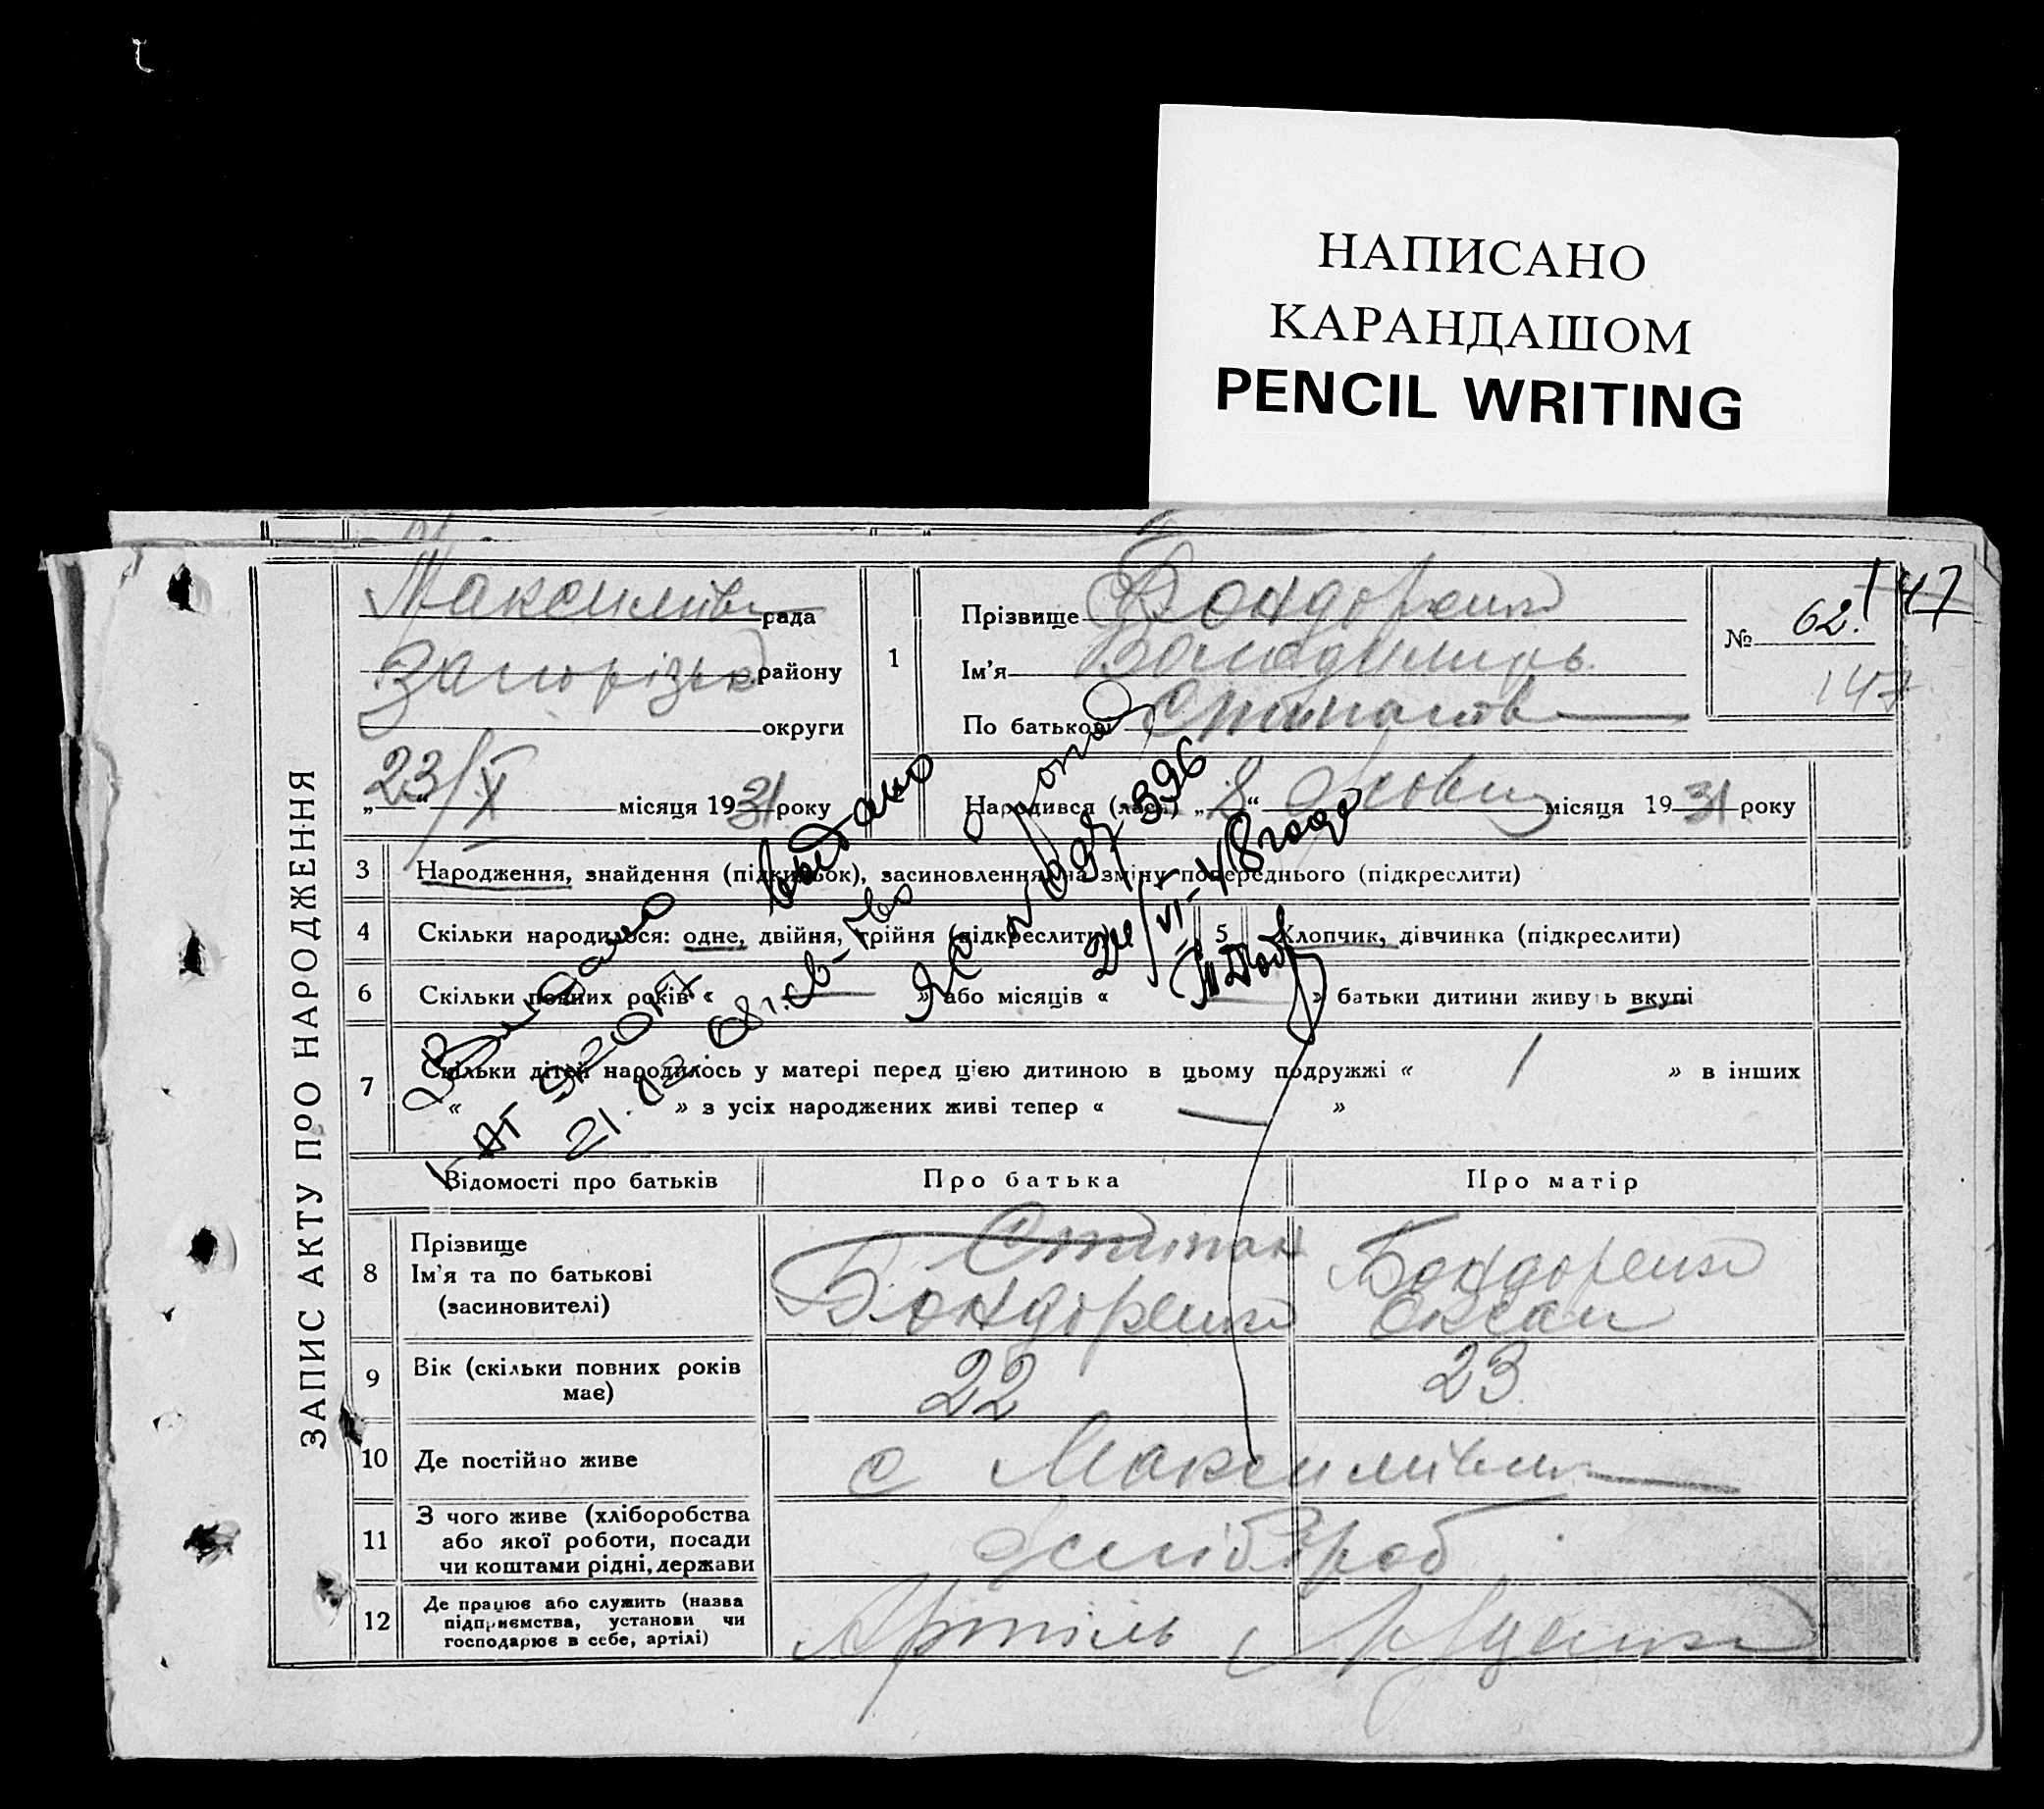 НАПИСАНО
КАРАНДАШОМ
PENCIL WRITING
ЗАПИС АКТУ ПРО НАРОДЖЕННЯ
Максимівк рада
району
округи
„23/X“ місяця 1931 року
1
Прізвище Бондоренко
Ім'я Володимирь
По батькові
№ 62
147
147
Народився (лась) „8“ Жовтн місяця 1931 року
3 Народження, знайдення (підкидьок), засиновлення, на зміну попереднього (підкреслити)
4 Скільки народилося: одне, двійня, трійня (підкреслити)
5 Хлопчик, дівчинка (підкреслити)
6 Скільки повних років « » або місяців « » батьки дитини живуть вкупі
7 Скільки дітей народилось у матері перед цією дитиною в цьому подружжі « 1 » в інших
« » з усіх народжених живі тепер « — »
видано
396
24/VI
21.03
Відомості про батьків Про батька Про матір
8 Прізвище
Ім'я та по батькові
(засиновителі)
Степан
Бондоренко
Бондоренко
Оксан
9 Вік (скільки повних років
має)
22 23
10 Де постійно живе
с Максимівка
11 З чого живе (хліборобства
або якої роботи, посади
чи коштами рідні, держави
Хлібороб
12 Де працює або служить (назва
підприємства, установи чи
господарює в себе, артілі)
Артіль